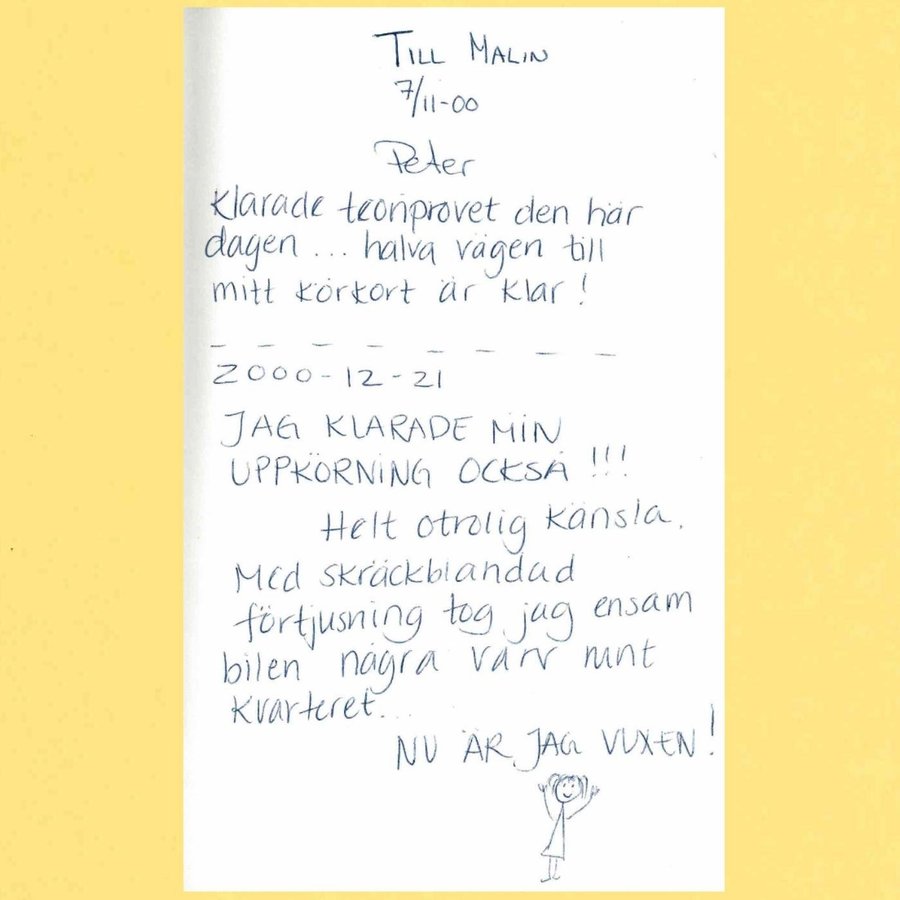 TILL MALIN
7/11-00
Peter
Klarade teoriprovet den här
dagen ... halva vägen till
mitt körkort är klar!
2000-12-21
JAG KLARADE MIN
UPPKÖRNING OCKSÅ !!!
Helt otrolig känsla.
Med skräckblandad
förtjusning tog jag ensam
bilen några varv runt
kvarteret...
NU ÄR JAG VUXEN!